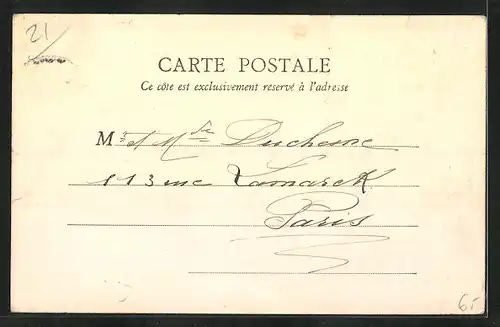 21
CARTE POSTALE
Ce côté est exclusivement réservé à l'adresse
Mr et Mde Duchesne
113 rue Lamarck
Paris
65